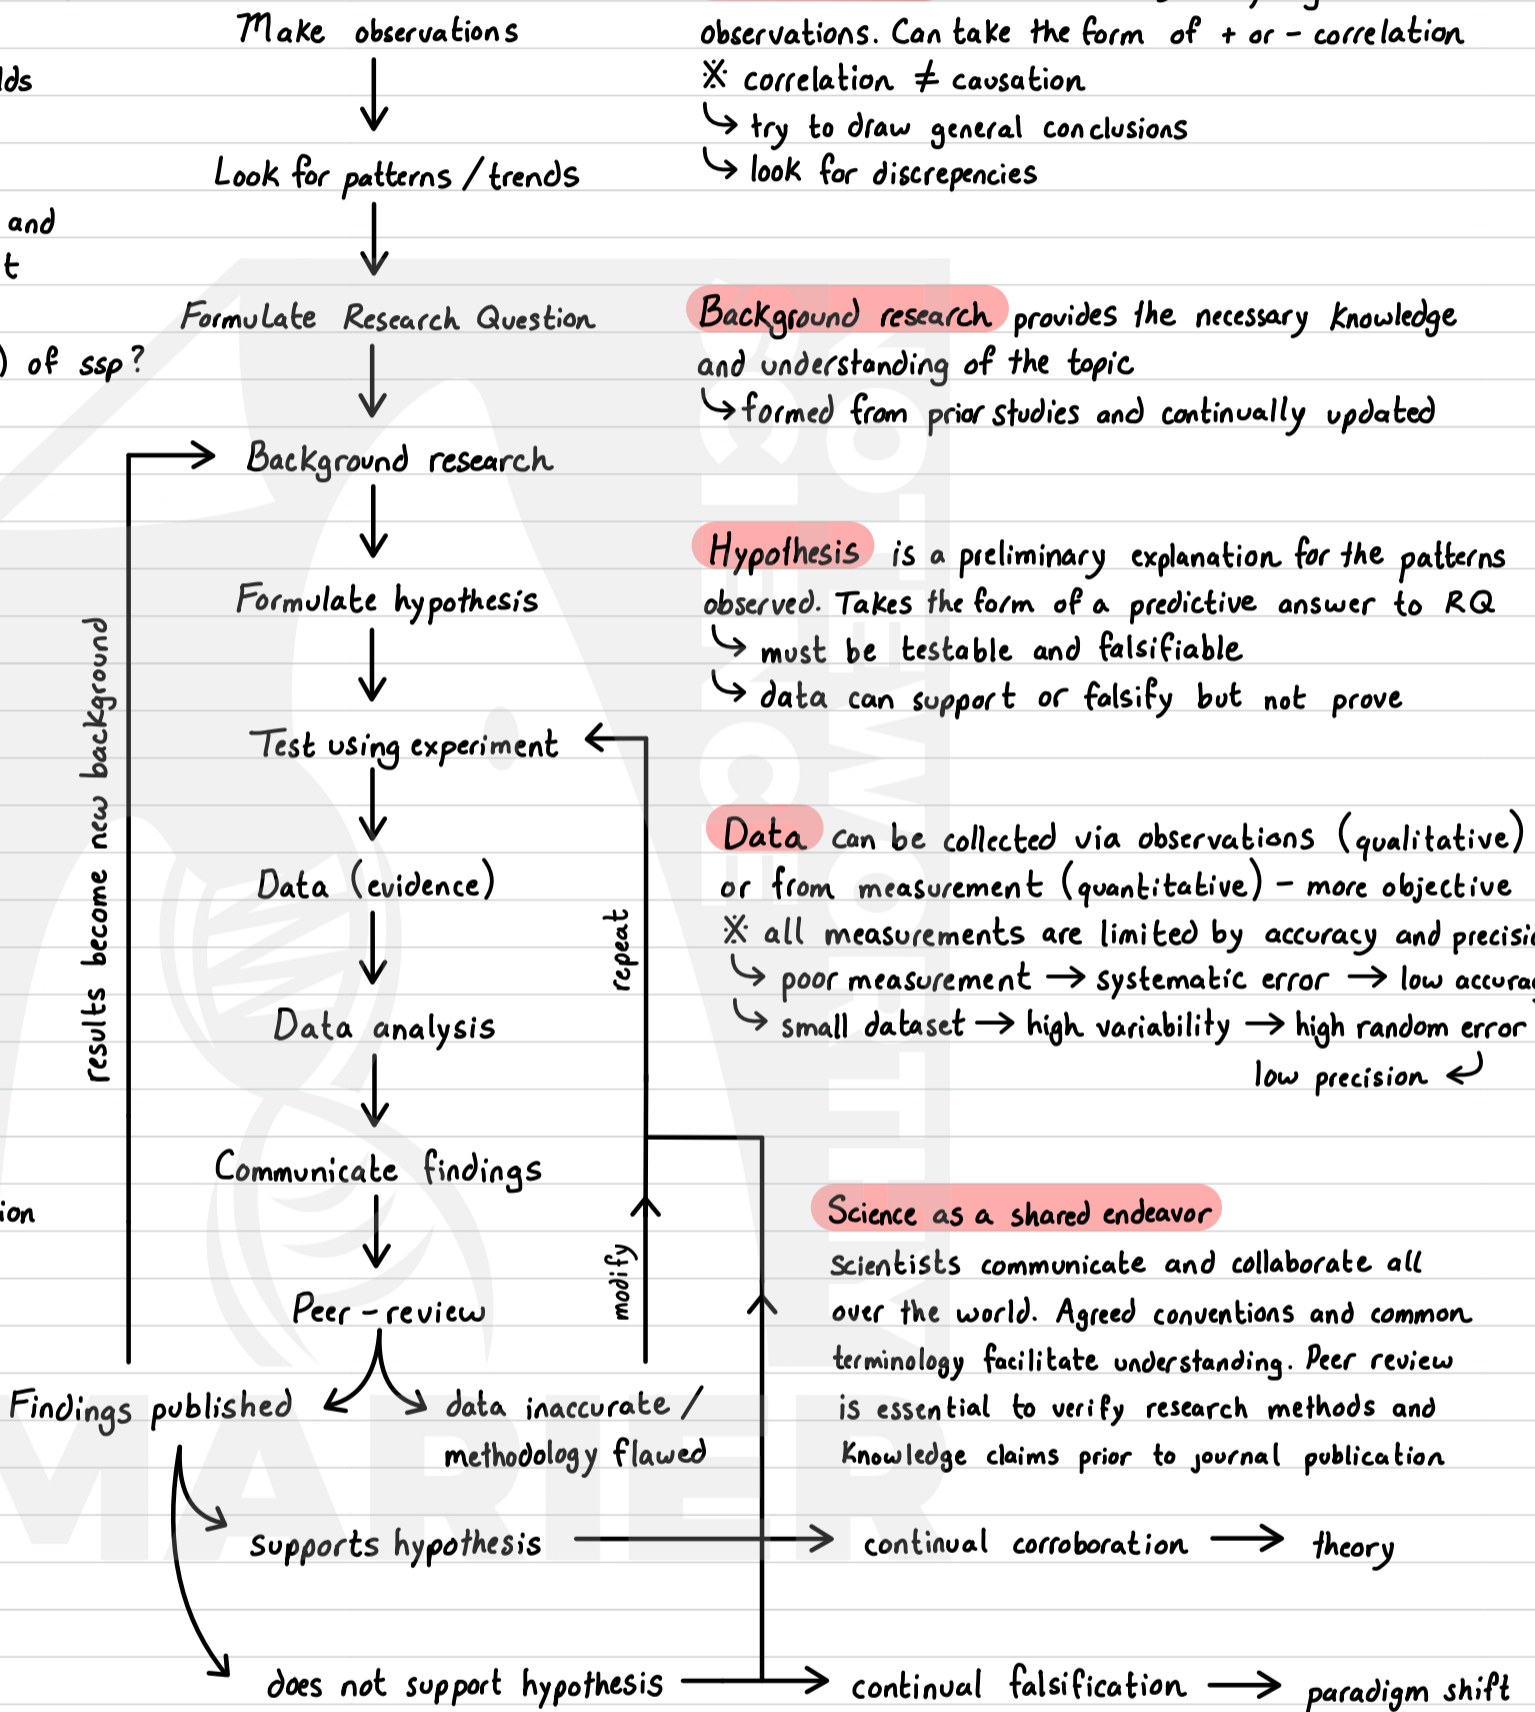 Make observations
lds
Look for patterns / trends
and
t
Formulate Research Question
) of ssp?
Background research
Formulate hypothesis
Test using experiment
Data (evidence)
Data analysis
Communicate findings
ion
Peer-review
Findings published
data inaccurate /
methodology flawed
supports hypothesis
does not support hypothesis
results become new background
repeat
modify
observations. Can take the form of + or - correlation
※ correlation ≠ causation
↳ try to draw general conclusions
↳ look for discrepencies
Background research provides the necessary knowledge
and understanding of the topic
↳ formed from prior studies and continually updated
Hypothesis is a preliminary explanation for the patterns
observed. Takes the form of a predictive answer to RQ
↳ must be testable and falsifiable
↳ data can support or falsify but not prove
Data can be collected via observations (qualitative)
or from measurement (quantitative) - more objective
※ all measurements are limited by accuracy and precisi
↳ poor measurement → systematic error → low accura
↳ small dataset → high variability → high random error
low precision ↲
Science as a shared endeavor
scientists communicate and collaborate all
over the world. Agreed conventions and common
terminology facilitate understanding. Peer review
is essential to verify research methods and
knowledge claims prior to journal publication
continual corroboration → theory
continual falsification → paradigm shift
NOTEWORTHY
SCIENCE
MARIER